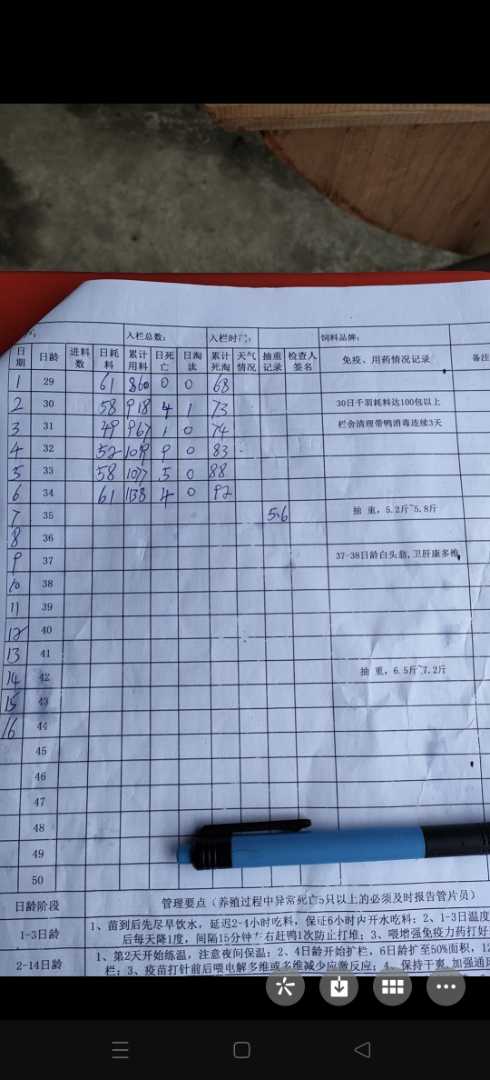 入栏总数: 入栏时间: 饲料品牌:
日期 日龄 进料数 日耗料 累计用料 日死亡 日淘汰 累计死淘 天气情况 抽重记录 检查人签名 免疫、用药情况记录 备注
1 29 61 860 0 0 68
2 30 58 918 4 1 73 30日千羽耗料达100包以上
3 31 49 967 1 0 74 栏舍清理带鸭消毒连续3天
4 32 52 1019 9 0 83
5 33 58 1077 5 0 88
6 34 61 1138 4 0 92
7 35 5.6 抽 重, 5.2斤~5.8斤
8 36
9 37 37-38日龄白头翁,卫肝康多维
10 38
11 39
12 40
13 41
14 42 抽 重, 6.5斤~7.2斤
15 43
16 44
45
46
47
48
49
50
日龄阶段 管理要点(养殖过程中异常死亡5只以上的必须及时报告管片员)
1-3日龄 1、苗到后先尽早饮水,延迟2-4小时吃料,保证6小时内开水吃料;2、1-3日温度
后每天降1度,间隔15分钟左右赶鸭1次防止打堆;3、喂增强免疫力药打好
2-14日龄 1、第2天开始练温,注意夜间保温;2、4日龄开始扩栏,6日龄扩至50%面积,12
栏;3、疫苗打针前后喂电解多维或多维减少应激反应;4、保持干爽,加强通风